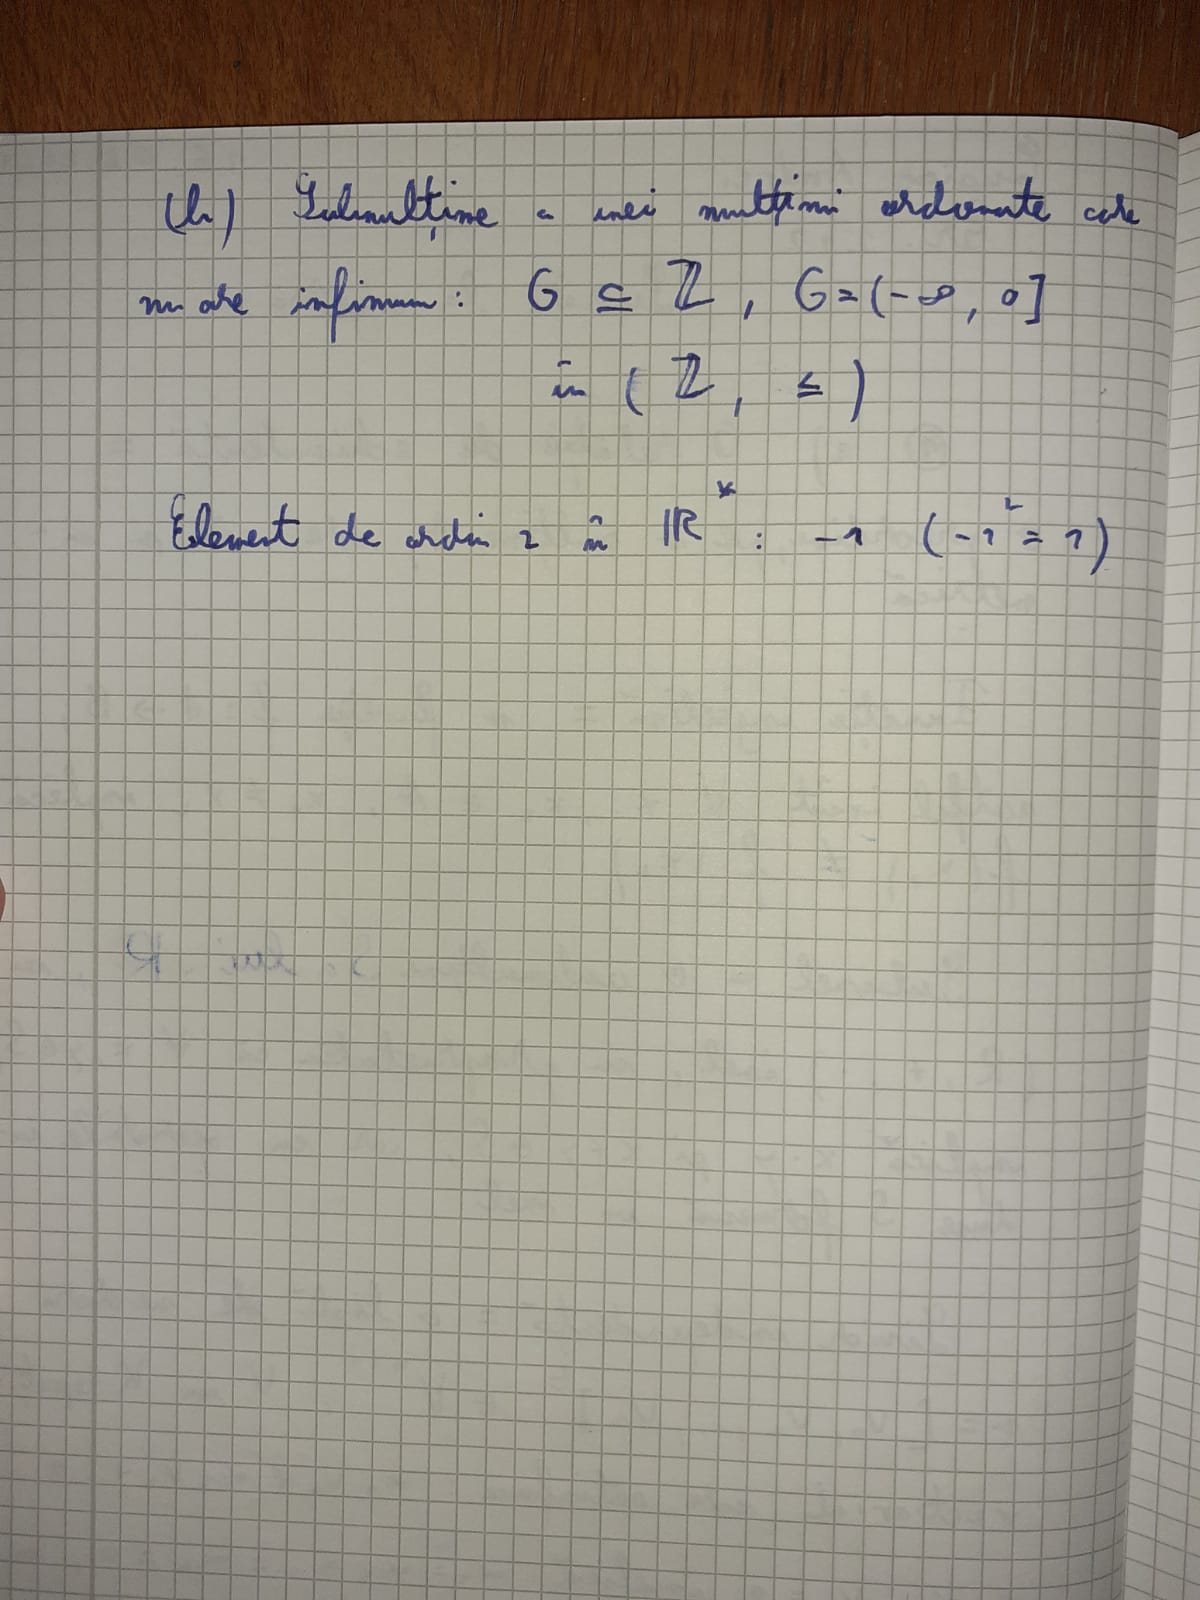 (b) Submulțime a unei mulțimi ordonate care
nu are infimum: G ⊆ ℤ, G=(-∞, 0]
în (ℤ, ≤)
Element de ordin 2 în ℝ* : -1 (-1² = 1)